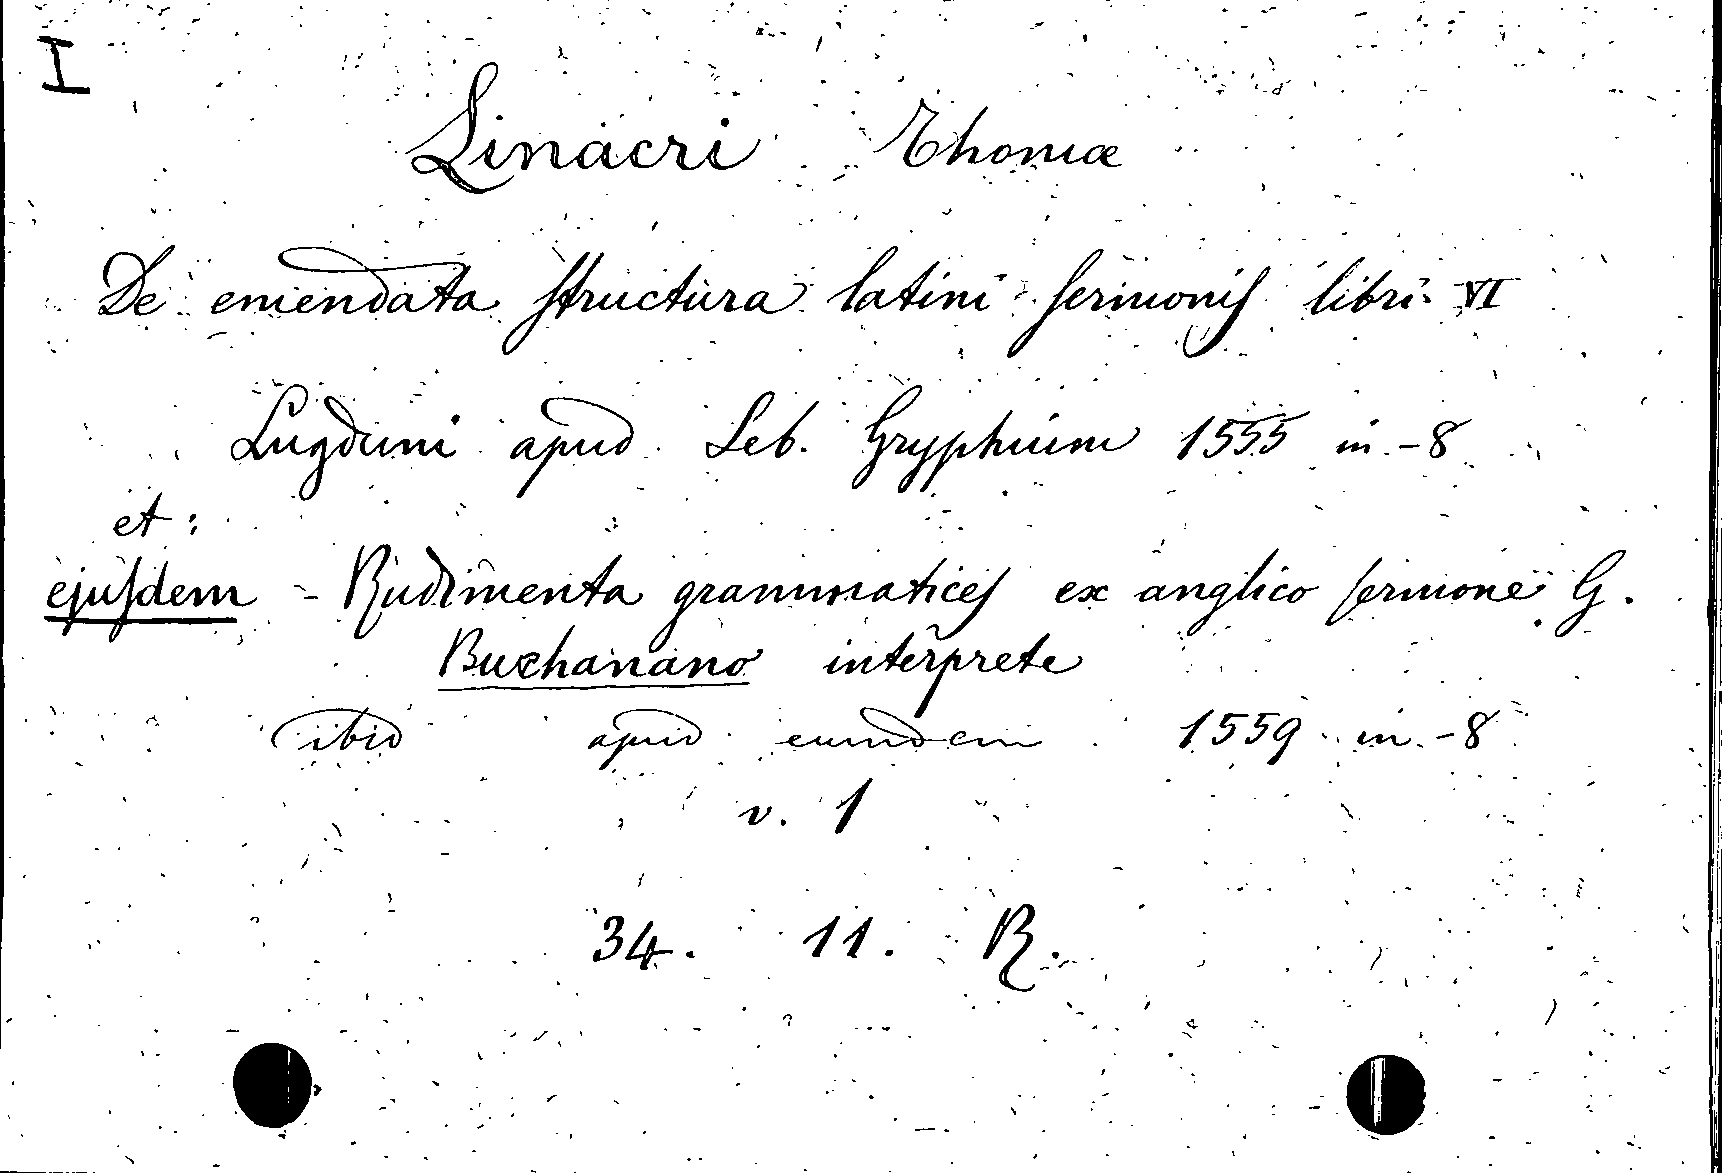 I
Linacri Thomæ
De emendata structura latini sermonis libri VI
Lugduni apud Seb. Gryphium 1555 in-8
et:
ejusdem - Rudimenta grammatices ex anglico sermone G.
Buchanano interprete
ibid apud eumdem 1559 in-8
v. 1
34. 11. R.